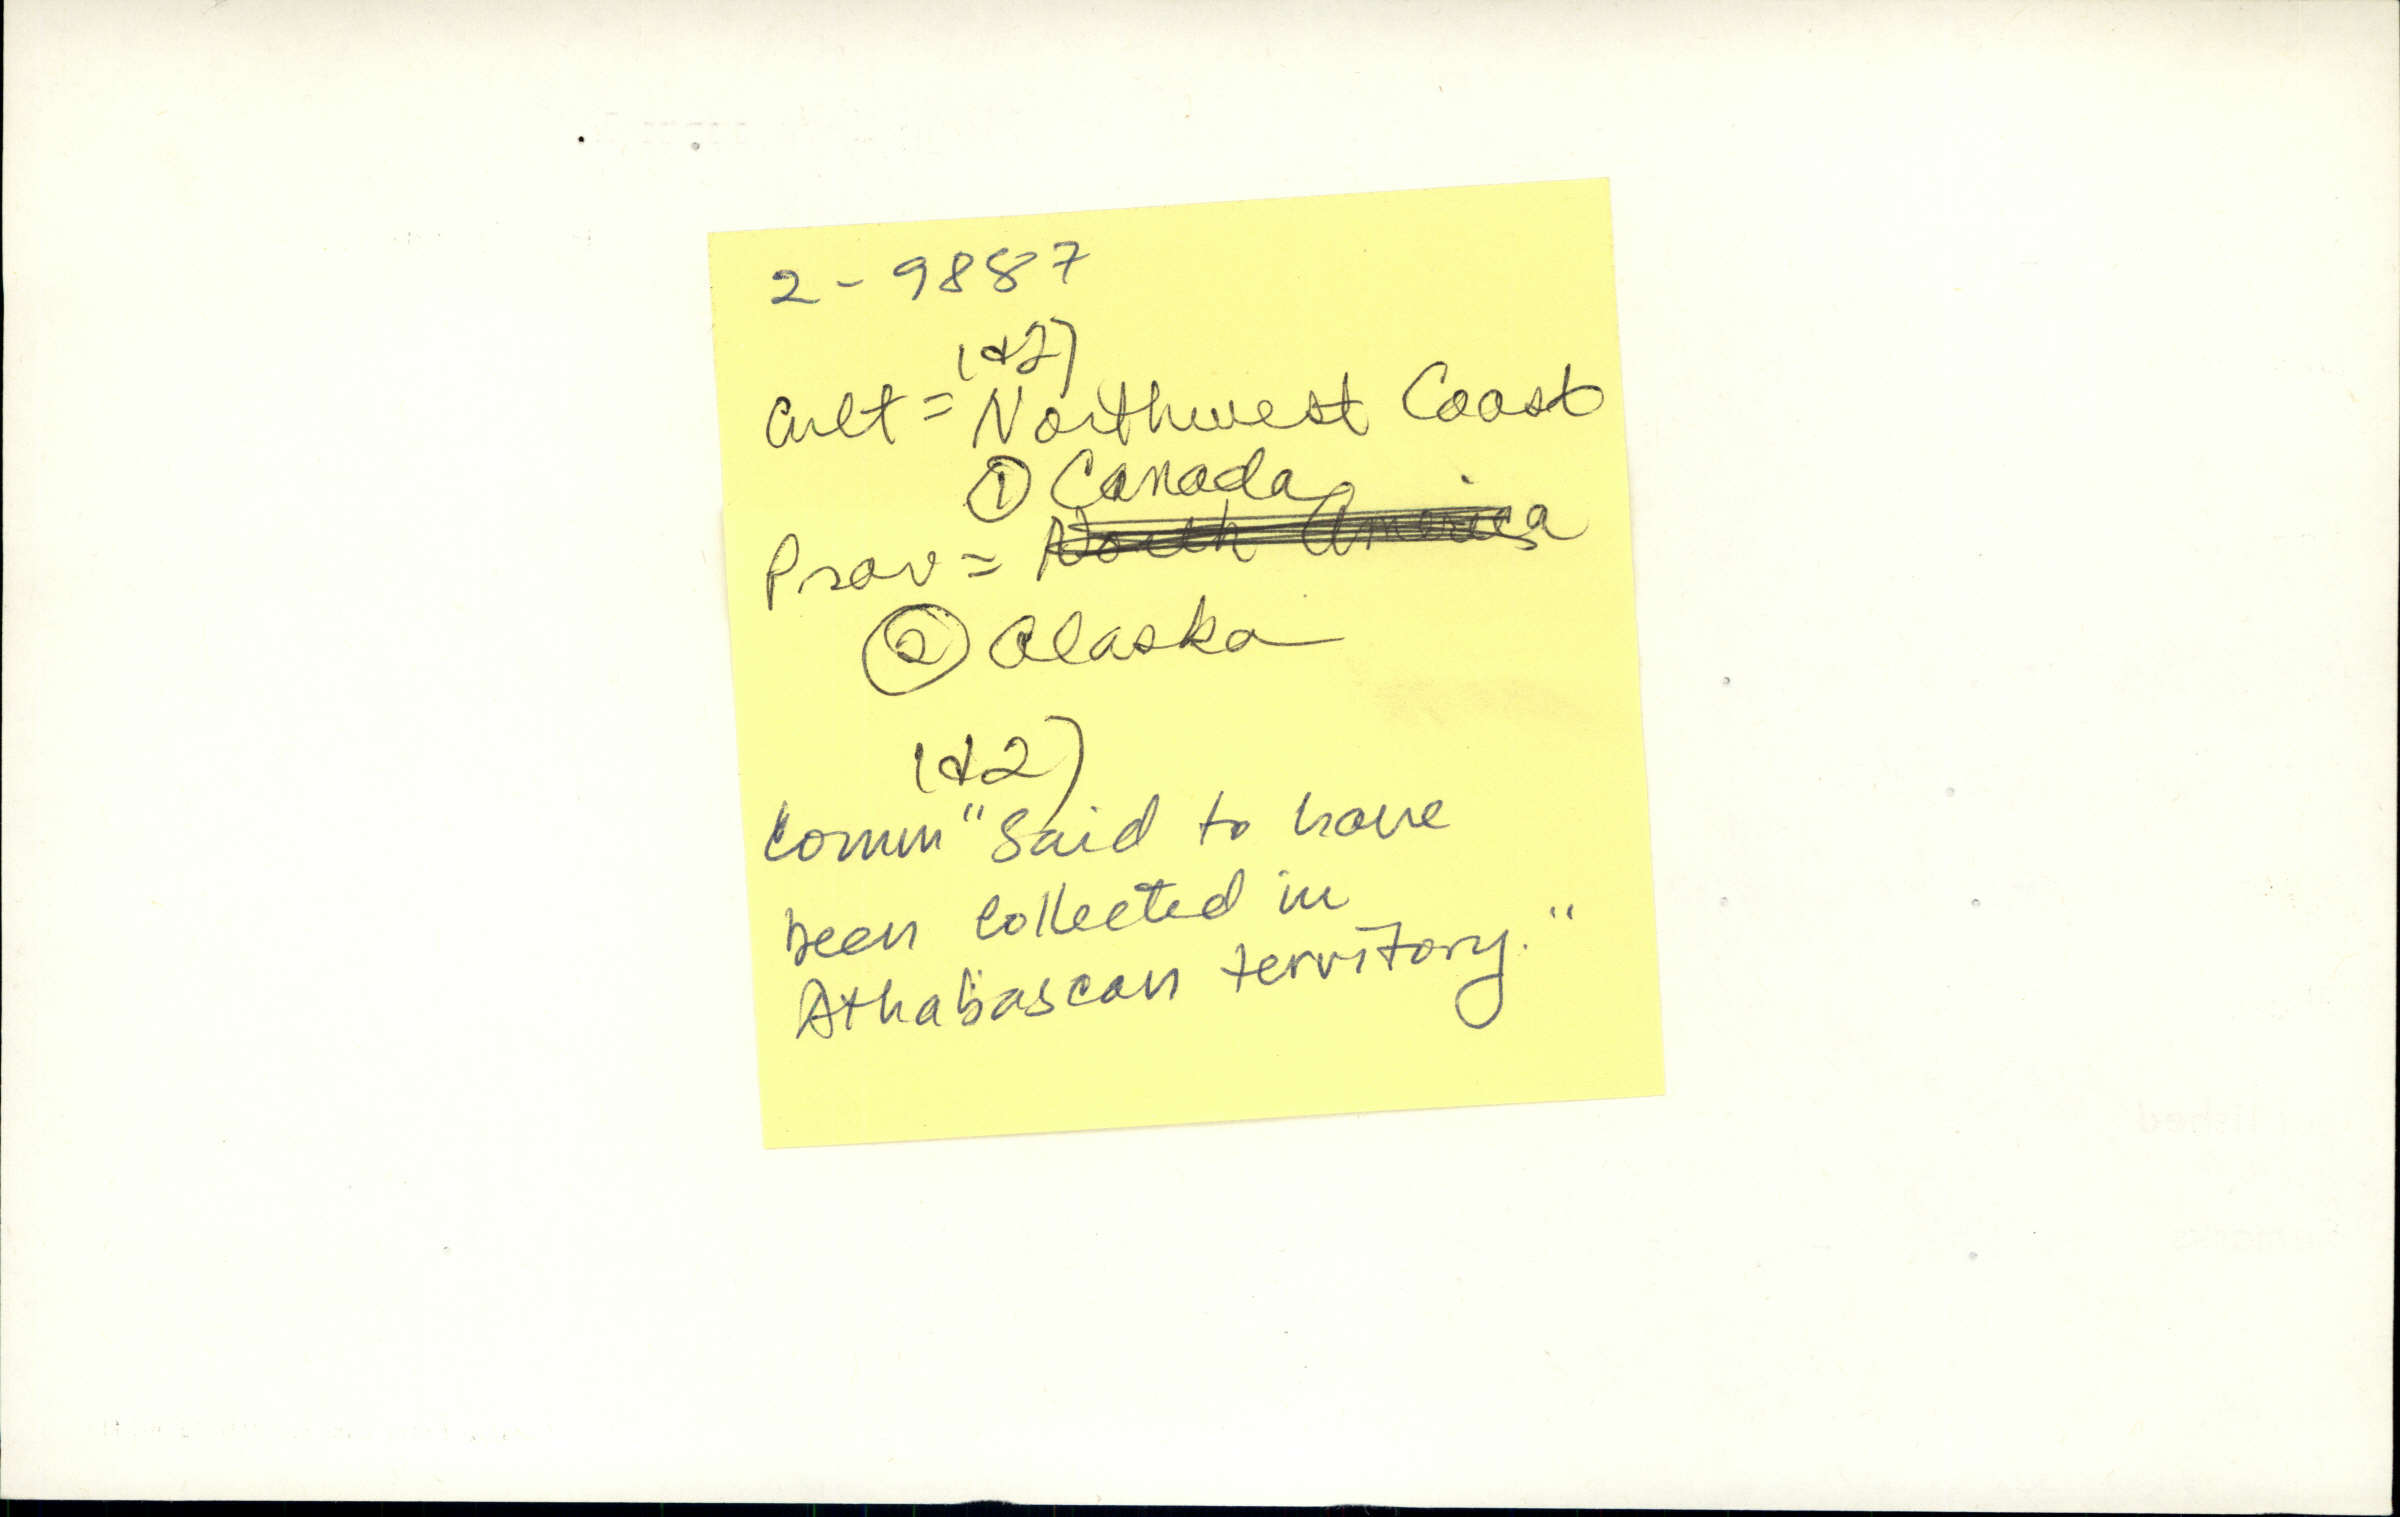 2-9887
1+2)
Cult = Northwest Coast
① Canada
Prov = North America
② Alaska
1+2)
Comm "Said to have
been collected in
Athabascan territory."